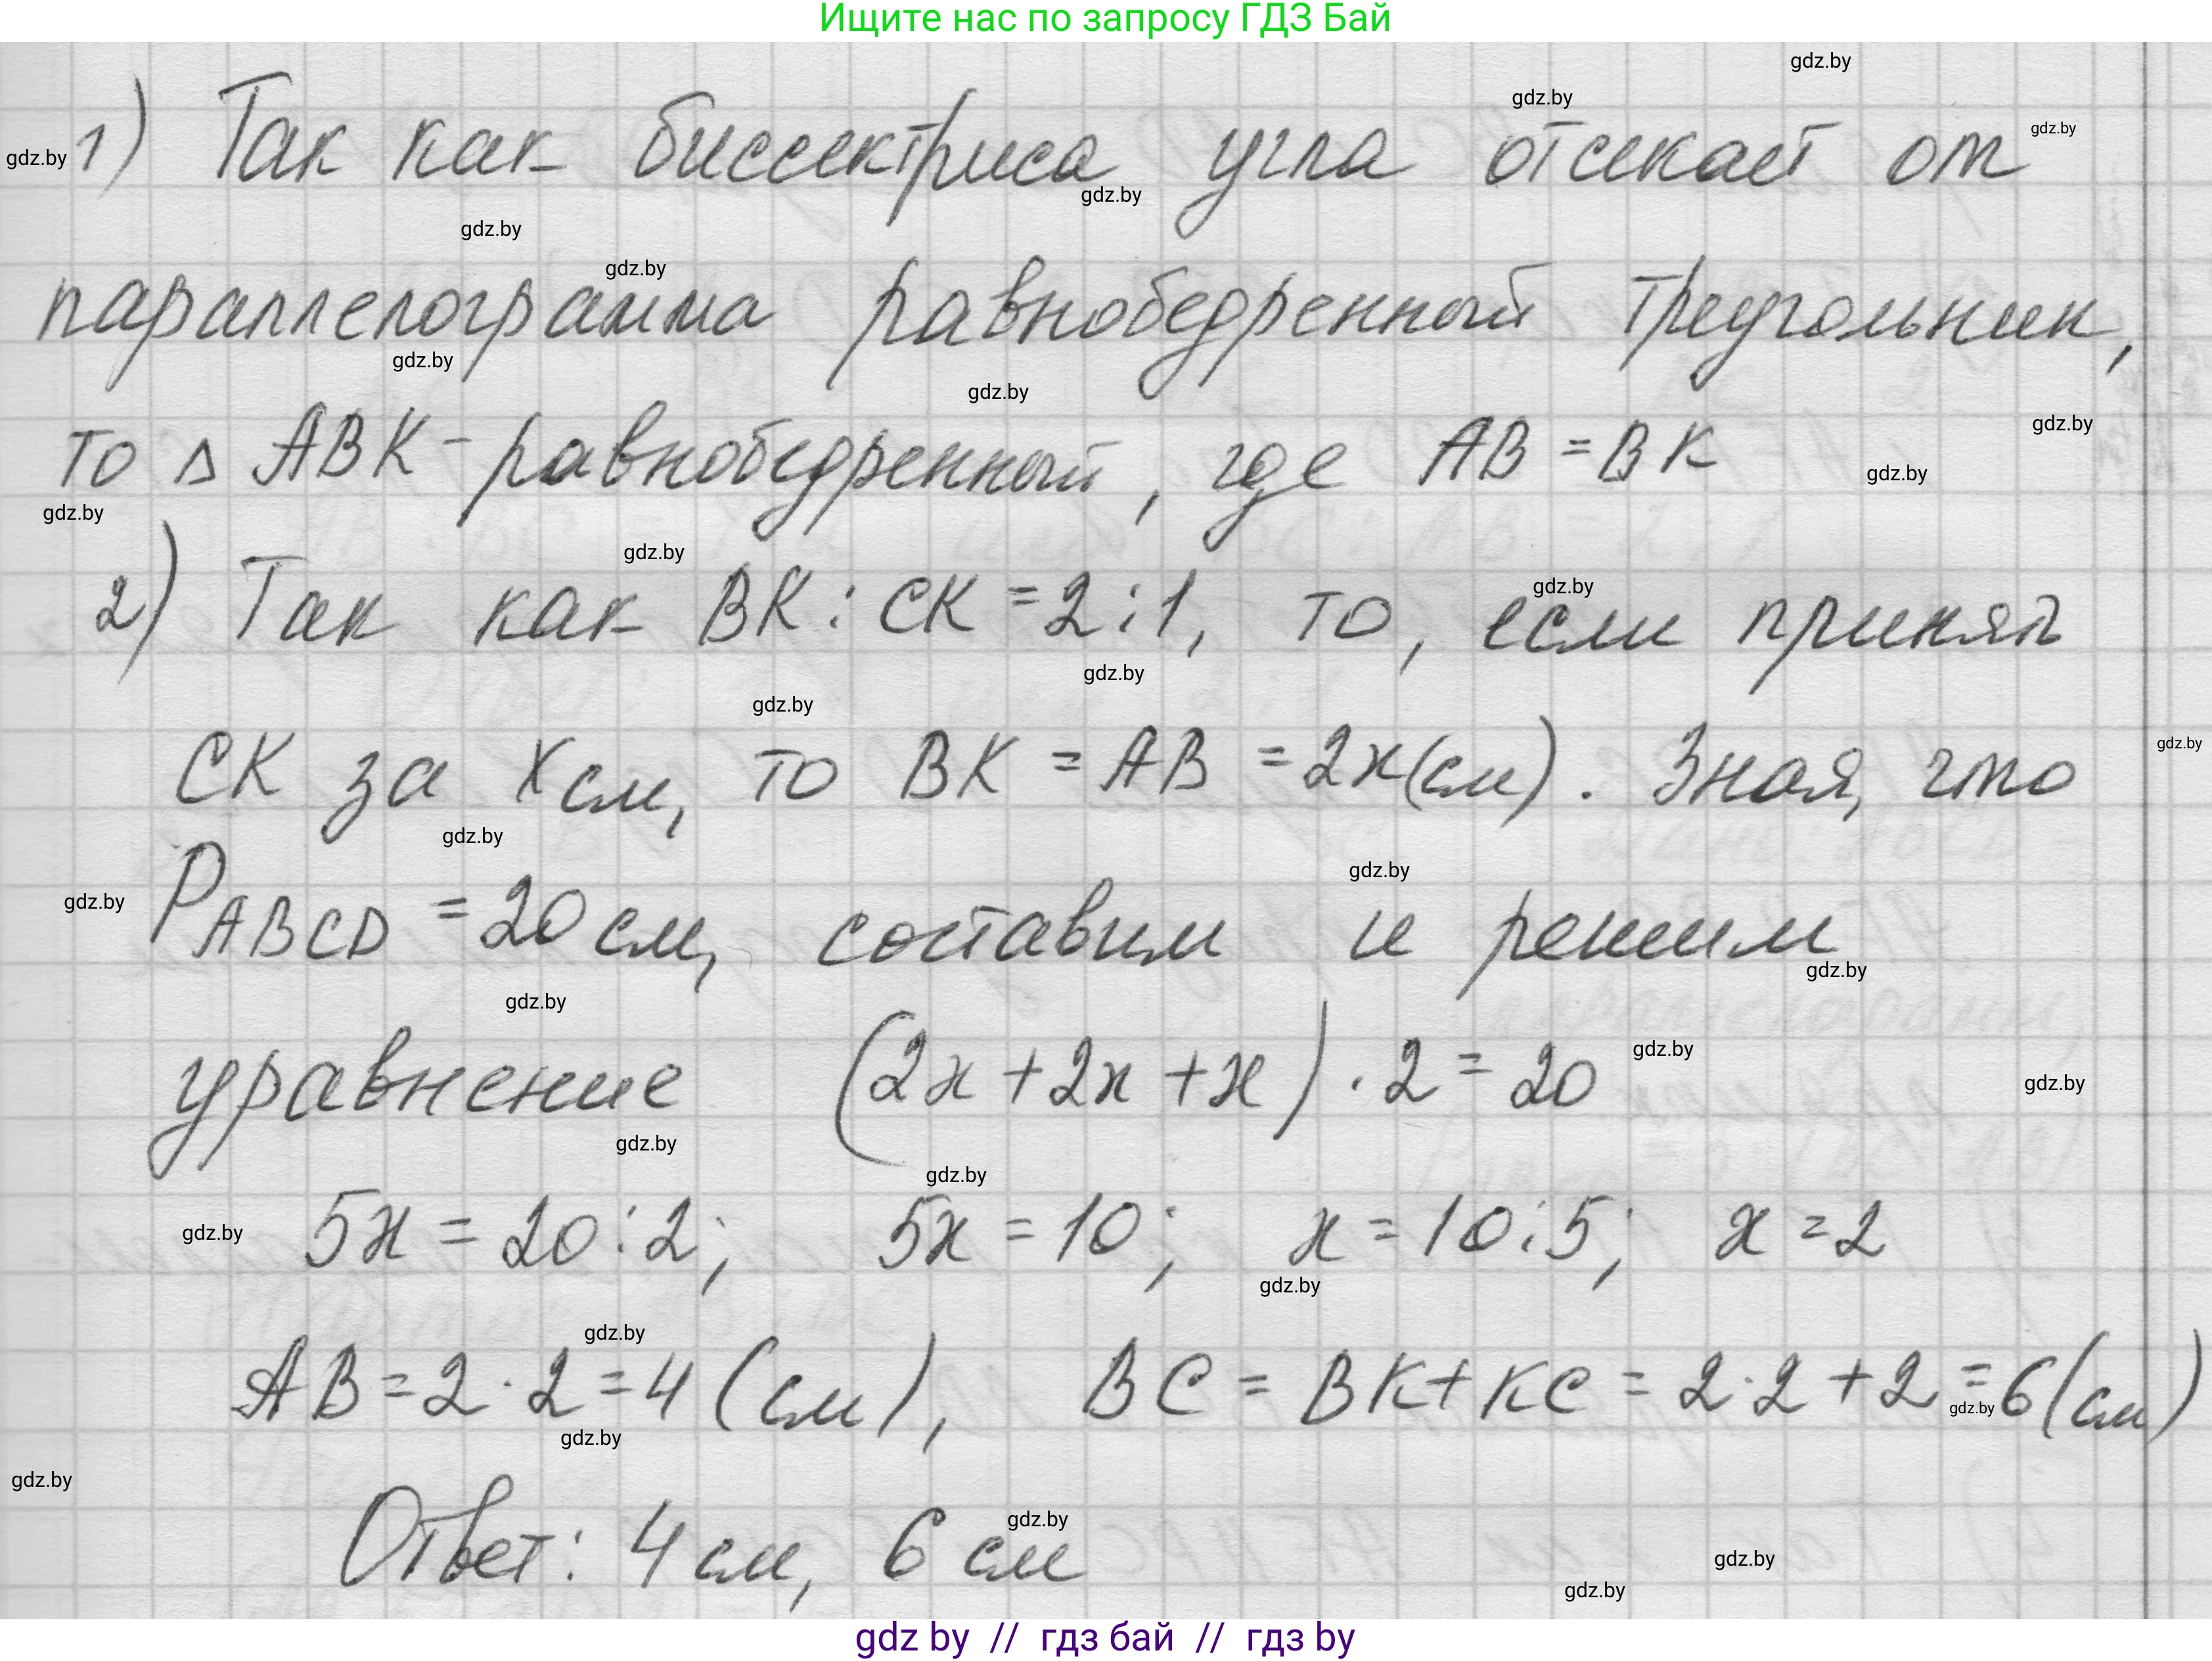 Ищите нас по запросу ГДЗ Бай
1) Так как биссектриса угла отсекает от
параллелограмма равнобедренный треугольник,
то △ ABK - равнобедренный, где AB = BK
2) Так как BK : CK = 2 : 1, то, если принять
CK за x см, то BK = AB = 2x (см). Зная, что
P ABCD = 20 см, составим и решим
уравнение (2x + 2x + x) · 2 = 20
5x = 20 : 2; 5x = 10; x = 10 : 5; x = 2
AB = 2 · 2 = 4 (см), BC = BK + KC = 2 · 2 + 2 = 6 (см)
Ответ: 4 см, 6 см
gdz by // гдз бай // гдз by